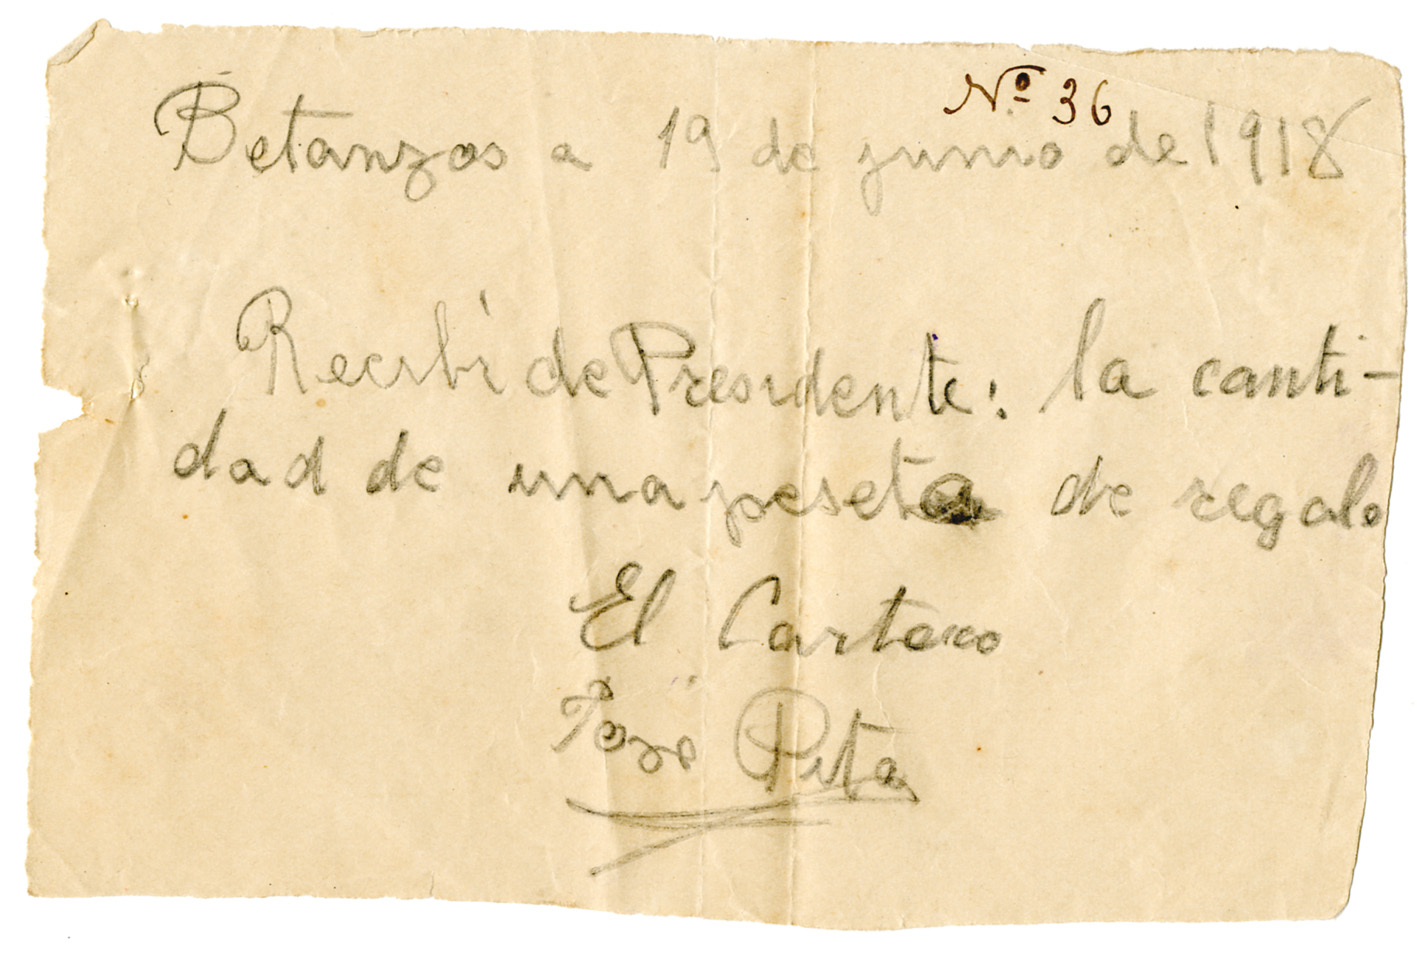 Nº 36
Betanzos a 19 de junio de 1918
Recibí de Presidente: la canti-
dad de una peseta de regalo
El Cartero
José Pita